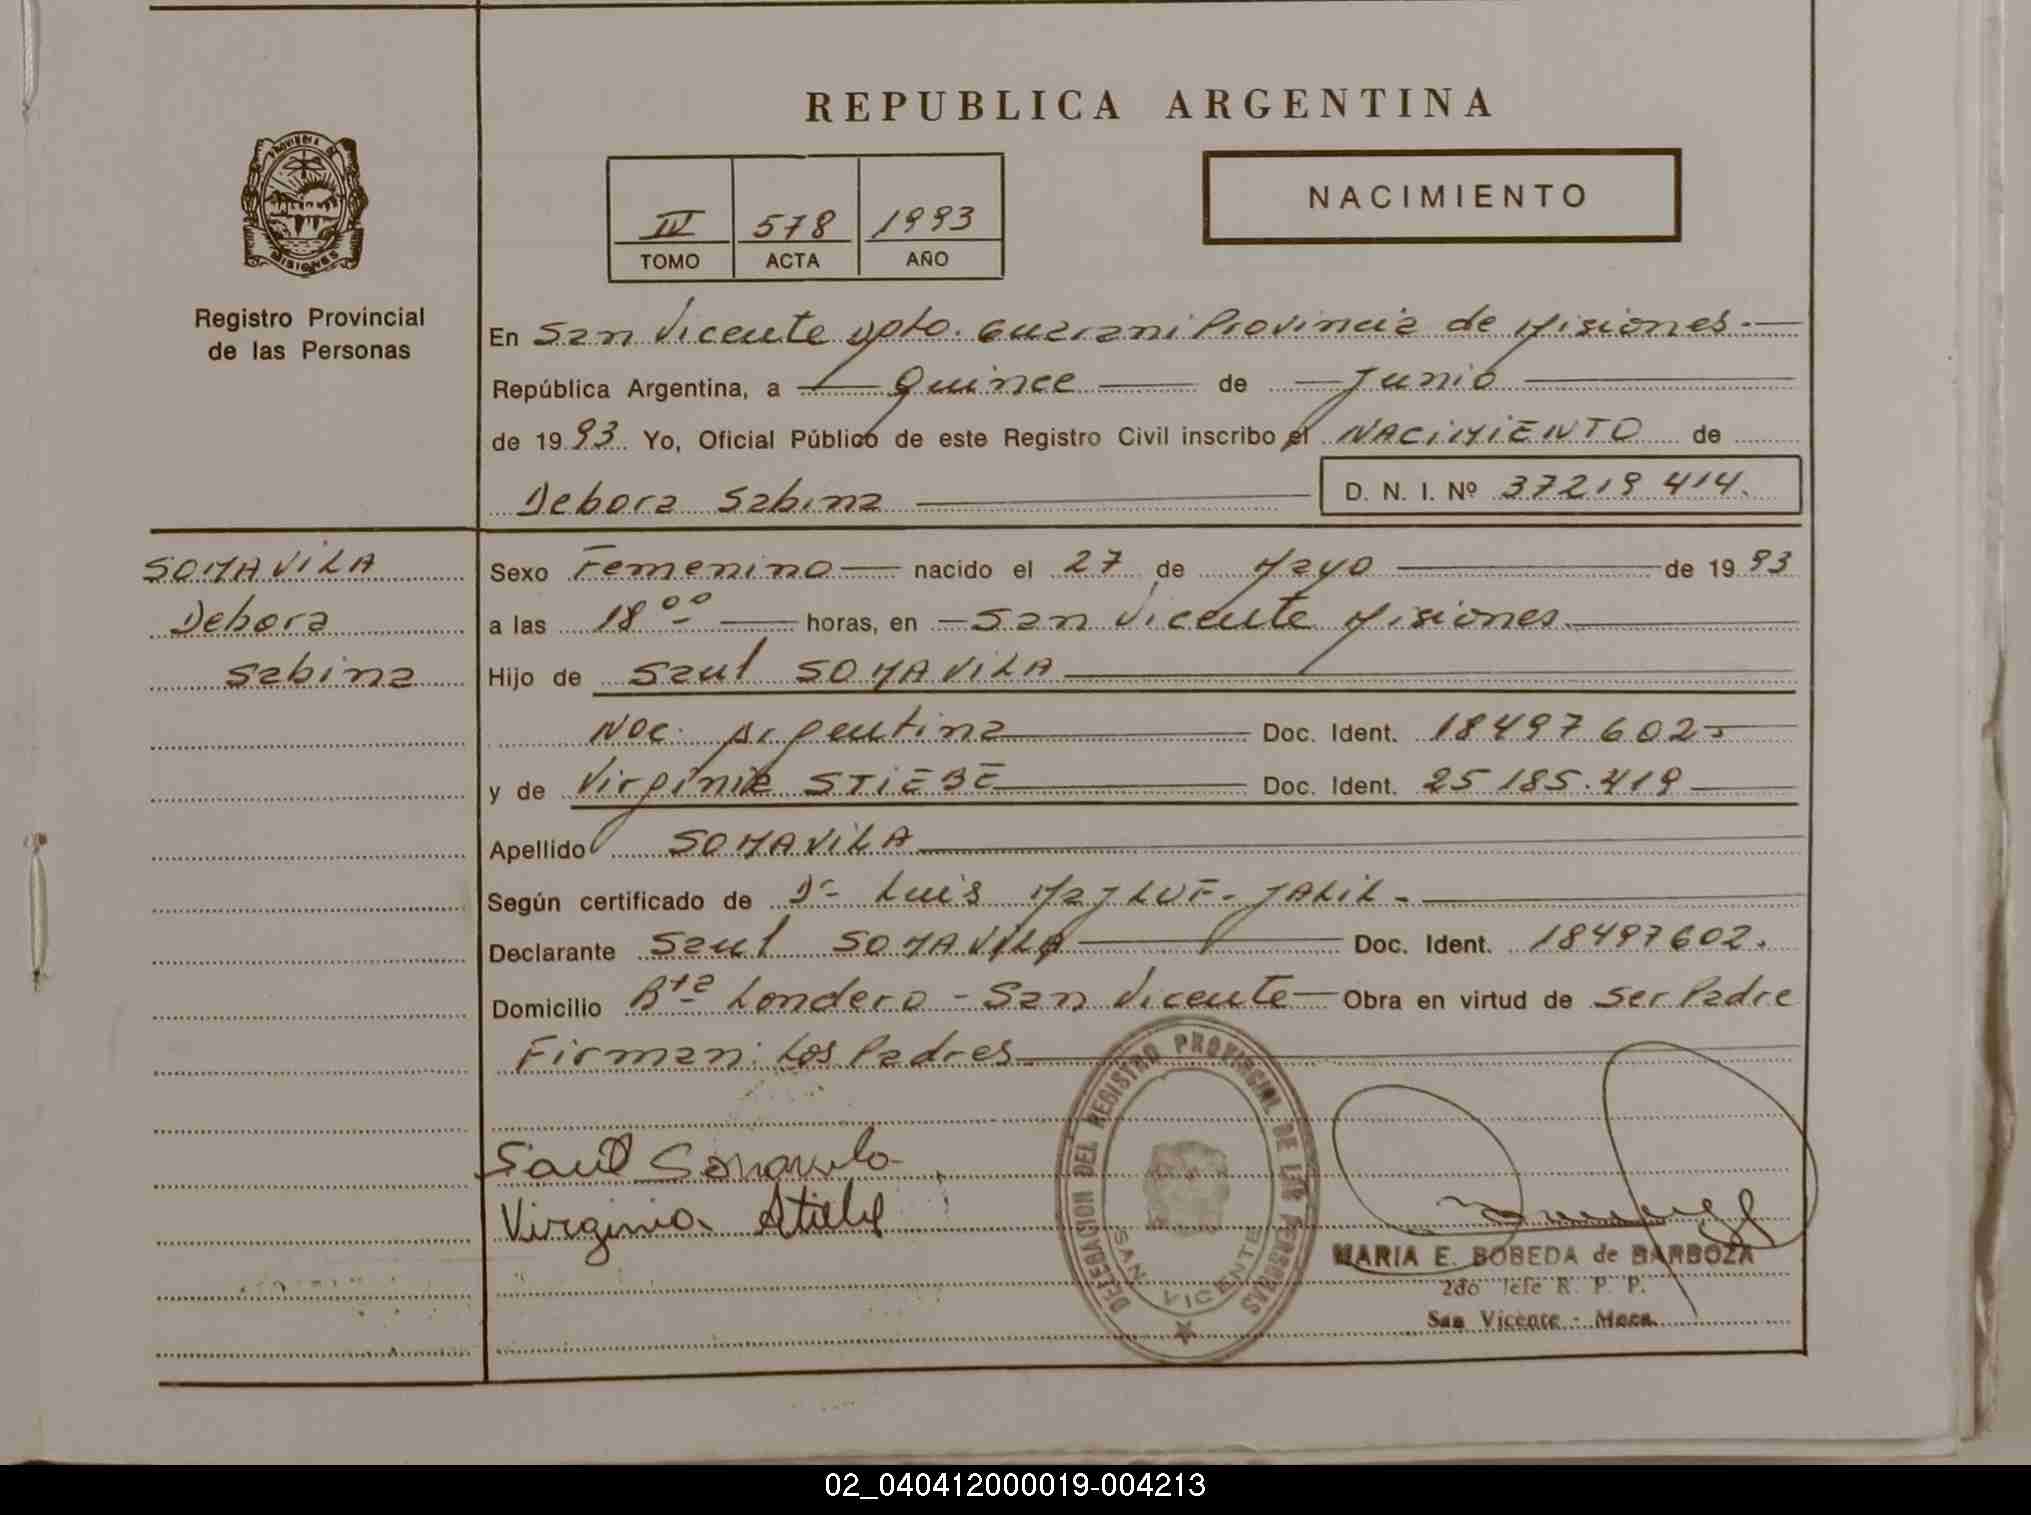 REPUBLICA ARGENTINA
PROVINCIA DE MISIONES
Registro Provincial
de las Personas
IV 578 1993
TOMO ACTA AÑO
NACIMIENTO
En San Vicente Dpto. Guarani Provincia de Misiones.
República Argentina, a Quince de Junio
de 1993 Yo, Oficial Público de este Registro Civil inscribo el NACIMIENTO de
Debora Sabina D. N. I. Nº 37219 414.
SOMAVILA
Debora
Sabina
Sexo Femenino nacido el 27 de Mayo de 1993
a las 18 oo horas, en San Vicente Misiones
Hijo de Saul SOMAVILA
Nac. Argentina Doc. Ident. 18497602
y de Virginia STIEBE Doc. Ident. 25.185.419
Apellido SOMAVILA
Según certificado de Dr. Luis MajLUF-JALIL-
Declarante Saul SOMAVILA Doc. Ident. 18497602.
Domicilio Bta Londero - San Vicente Obra en virtud de Ser Padre
Firman: Los Padres
Saul Somavila
Virginia Stiebe
DELEGACION DEL REGISTRO PROVINCIAL DE LAS PERSONAS
SAN VICENTE
MARIA E. BOBEDA de BARBOZA
2do Jefe R. P. P.
San Vicente - Mnes.
02_040412000019-004213